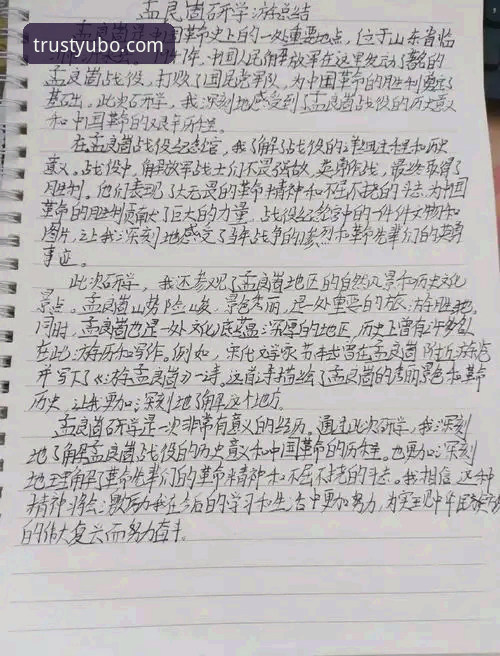 孟良崮研学游总结
trustyubo.com
孟良崮是中国革命史上的一处重要地点，位于山东省临
年，中国人民解放军在这里发动了著名的
孟良崮战役，打败了国民党军队，为中国革命的胜利奠定了
基础。此次研学，我深刻地感受到了孟良崮战役的历史意义
和中国革命的艰辛历程。
在孟良崮战役纪念馆，我了解了战役的详细过程和历史
意义。战役中，解放军战士们不畏强敌，英勇作战，最终取得了
胜利。他们表现了大无畏的革命精神和不屈不挠的斗志，为中国
革命的胜利贡献了巨大的力量。战役纪念馆中的一件件文物和
图片，让我深刻地感受了当年战争的惨烈和革命先辈们的英勇
事迹。
此次研学，我还参观了孟良崮地区的自然风景和历史文化
景点。孟良崮山势险峻，景色秀丽，是一处重要的旅游胜地。
同时，孟良崮也是一处文化底蕴深厚的地区，历史上曾有许多名人
在此游历和写作。例如，宋代文学家苏轼曾在孟良崮附近游览
并写下了《游孟良崮》一诗。这首诗描绘了孟良崮的秀丽景色和革命
历史，让我更加深刻地了解了这个地方。
孟良崮研学是一次非常有意义的经历。通过此次研学，我深刻
地了解了孟良崮战役的历史意义和中国革命的历程。也更加深刻
地理解了革命先辈们的革命精神和不屈不挠的斗志。我相信，这种
精神将会激励我在今后的学习和生活中更加努力，为实现中华民族
的伟大复兴而努力奋斗。